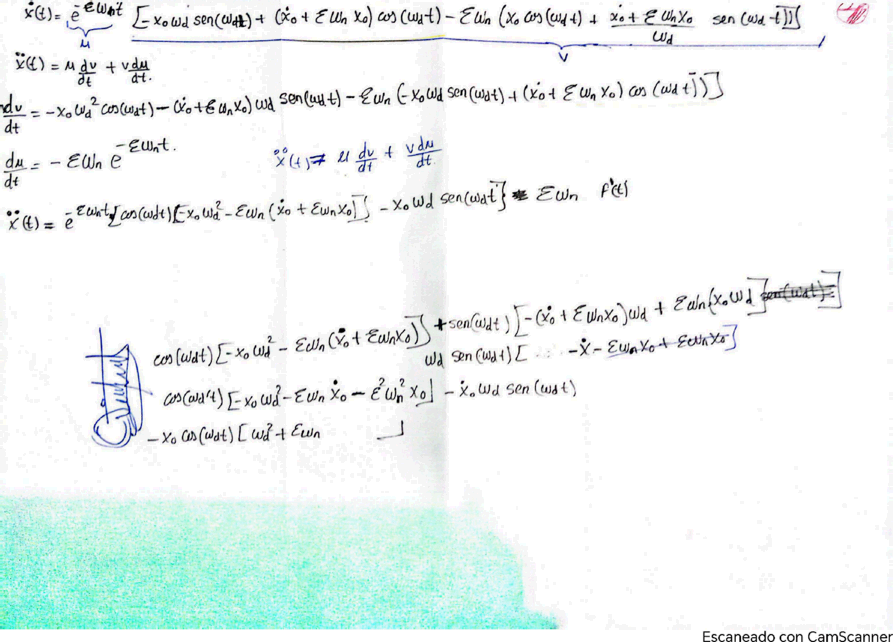 ẋ(t) = e^{-εωnt} [-x₀ωd sen(ωdt) + (ẋ₀ + εωn x₀) cos(ωdt) - εωn (x₀ cos(ωdt) + (ẋ₀ + εωnx₀)/ωd sen(ωdt))]
μ v
ẍ(t) = μ dv/dt + v dμ/dt.
dv/dt = -x₀ωd² cos(ωdt) - (ẋ₀ + εωnx₀) ωd sen(ωdt) - εωn (-x₀ωd sen(ωdt) + (ẋ₀ + εωn x₀) cos(ωdt))]
dμ/dt = -εωn e^{-εωnt}. ẍ(t) = μ dv/dt + v dμ/dt.
ẍ(t) = e^{-εωnt} [cos(ωdt)[-x₀ωd² - εωn (ẋ₀ + εωnx₀)] - x₀ωd sen(ωdt)} εωn
cos(ωdt)[-x₀ωd² - εωn(ẋ₀ + εωnx₀)] + sen(ωdt)[-(ẋ₀ + εωnx₀)ωd + εωn(x₀ωd]
ωd sen(ωdt)[ -ẋ - εωnx₀ + εωnx₀]
cos(ωdt)[-x₀ωd² - εωn ẋ₀ - ε²ωn² x₀] - ẋ₀ωd sen(ωdt)
-x₀ cos(ωdt)[ωd² + εωn ]
Escaneado con CamScanner